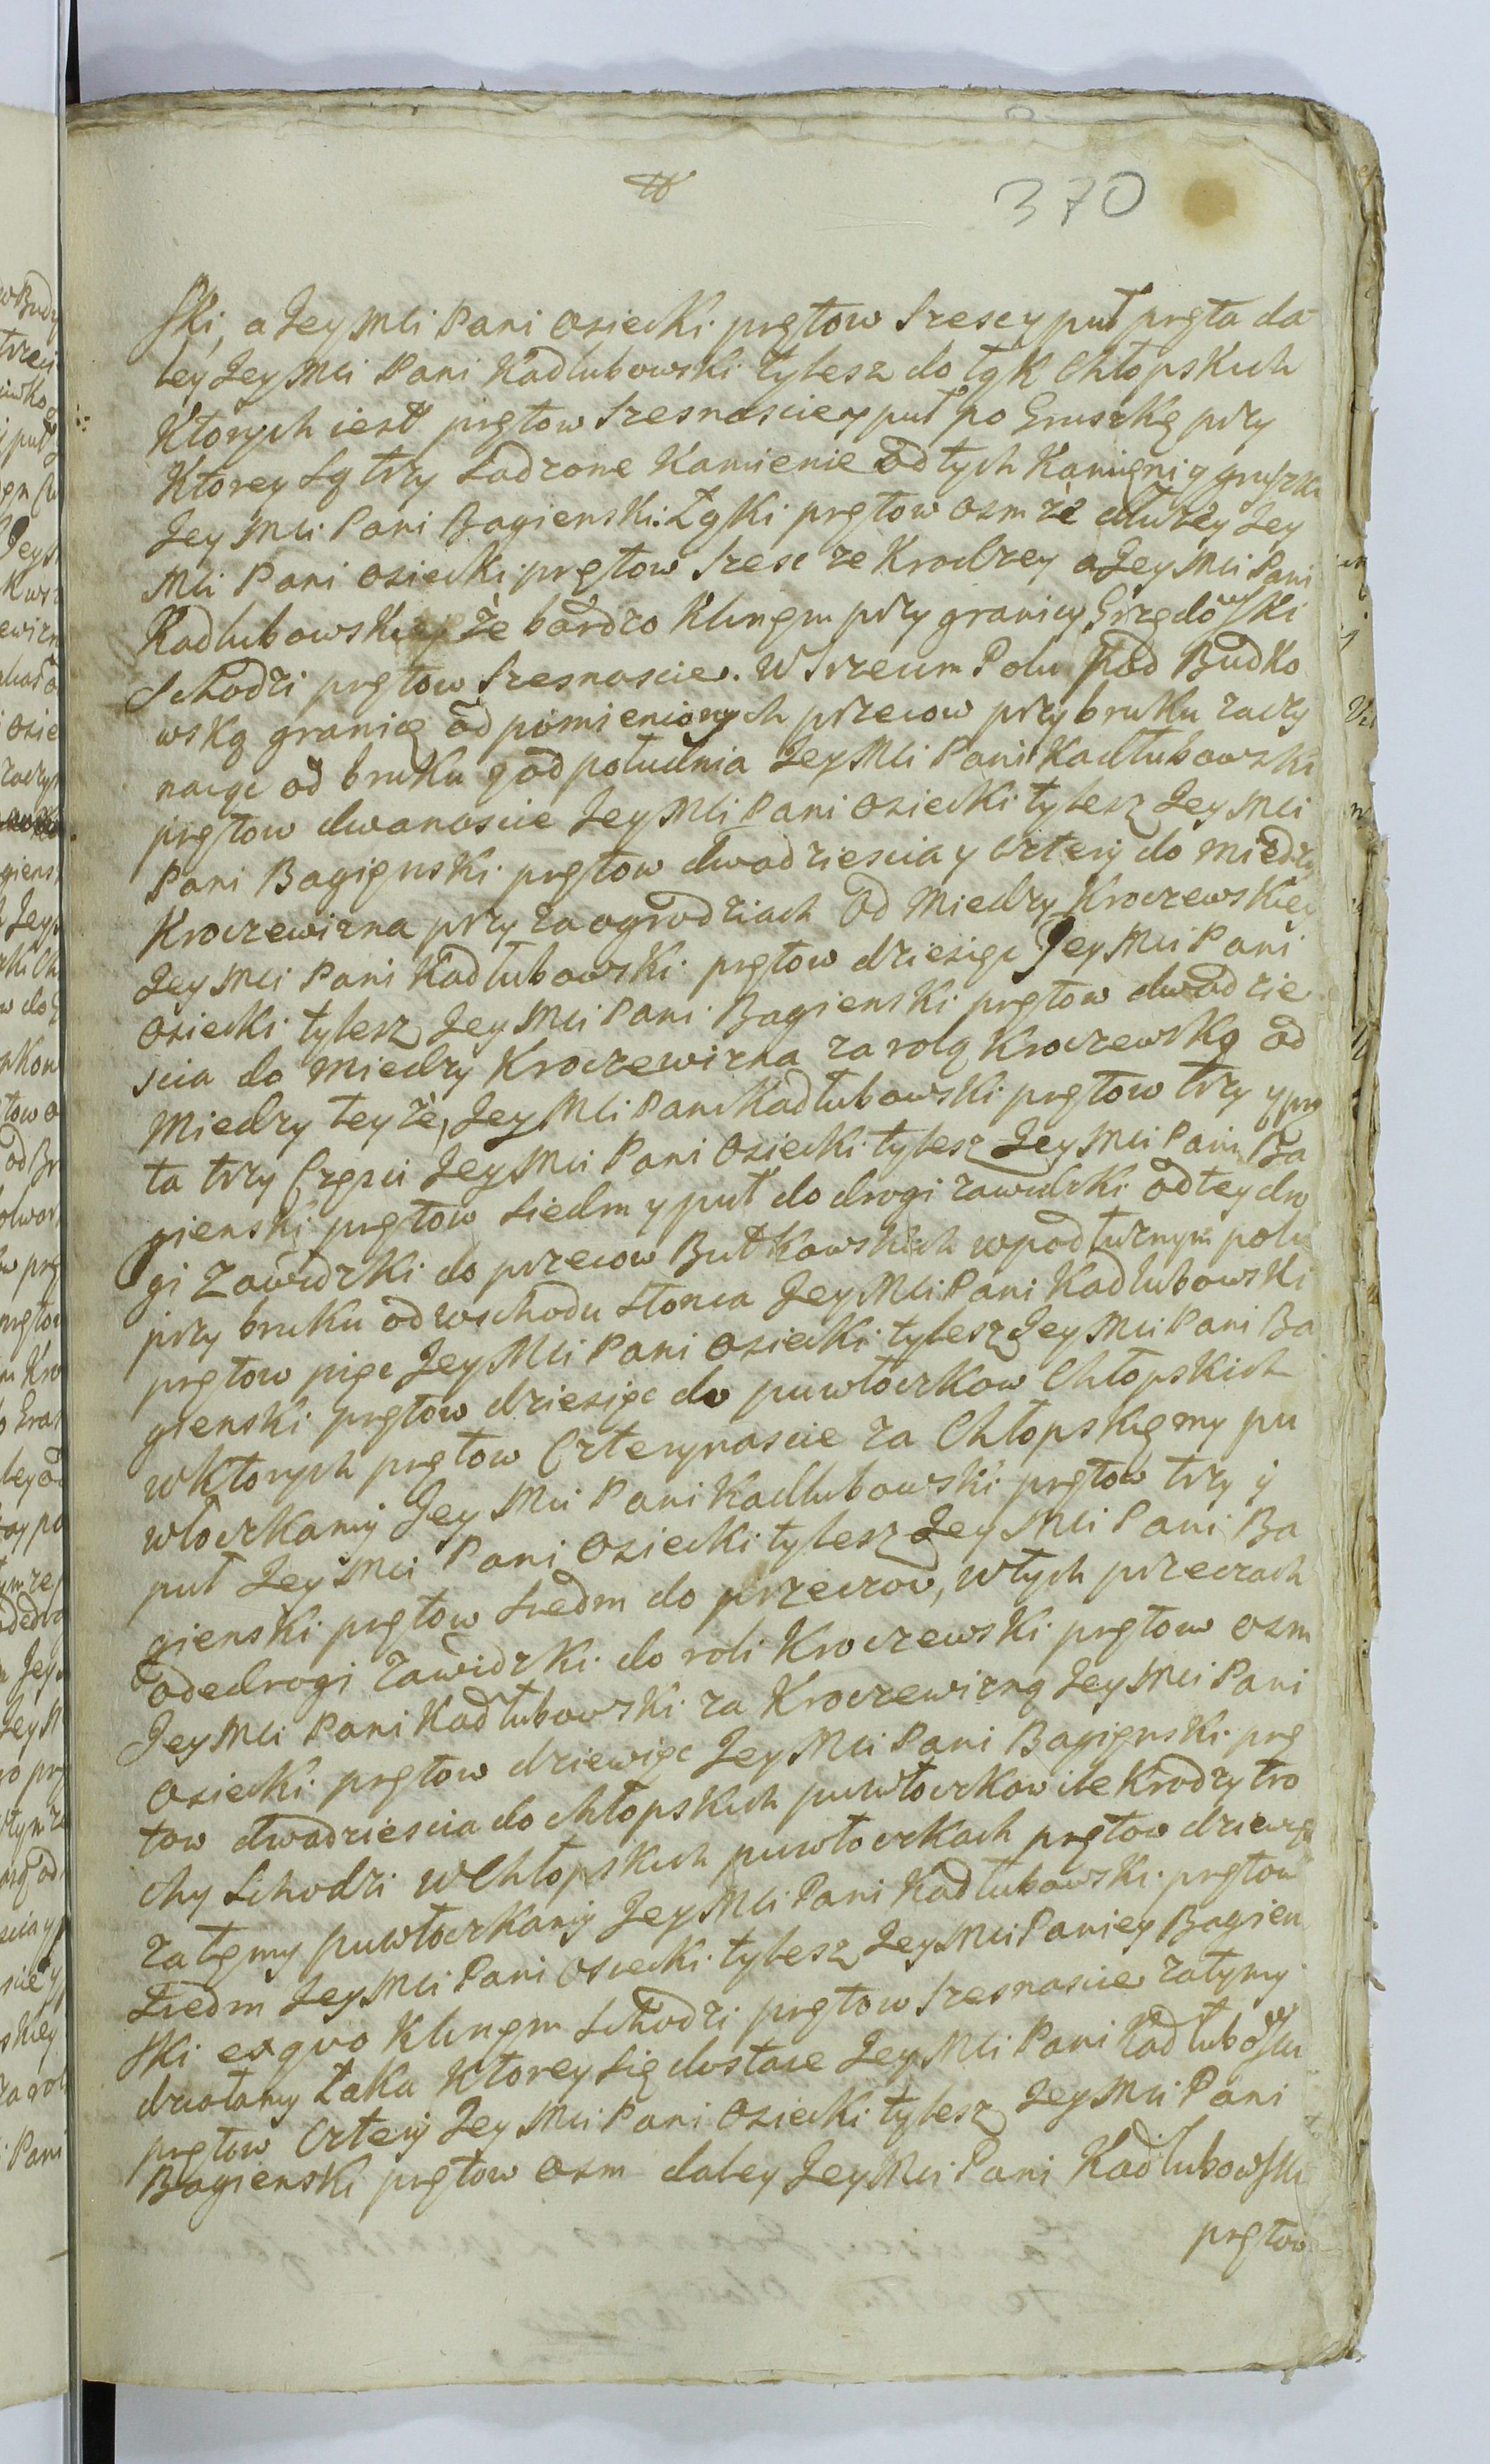 370
ski, a JeyMci Pani Osiecki prętow szesc y puł pręta da-
ley JeyMci Pani Kadlubowski tylesz do łąk Chłopskich
Ktorych iest prętow szesnascie y puł po Gruszkę przy
Ktorey są trzy sadzone Kamienie od tych Kamięni y gruszki
Jey Mci Pani Bagienski Łąki prętow osm że dłuzey Jey
Mci Pani Osiecki prętow szesc ze Krodzey a Jey Mci Pani
Kadlubowski że bardzo Klinęm przy granicy Grzędowski
Schodzi prętow szesnascie. W Trzecim Polu pod Budko
wską granicę od pomienionych przecow przy bruku zaczy
naiąc od bruku y od południa JeyMci Pani Kadłubowski
prętow dwanascie Jey Mci Pani Osiecki tylesz Jey Mci
Pani Bagięnski prętow dwadziescia y cztery do miedzy
Kroczewizna przy zaogrodziach od Miedzy Kroczewskiey
Jey Mci Pani Kadłubowski prętow dziesięc Jey Mci Pani
Osiecki tylesz Jey Mci Pani Bagienski prętow dwadzie
scia do Miedzy Kroczewizna za rolą Kroczewską od
Miedzy teyże, Jey Mci Pani Kadłubowski prętow trzy y prę
ta trzy Częsci Jey Mci Pani Osiecki tylesz Jey Mci Pani Ba
gienski prętow siedm y puł do drogi zawidzki od tey dro
gi Zawidzki do przecow Butkowskich wpodłuznym polu
przy bruku od wschodu Słonca JeyMci Pani Kadlubowski
prętow pięc Jey Mci Pani Osiecki tylesz Jey Mci Pani Ba
gienski prętow dziesięc do puwłoczkow Chłopskich
wktorych prętow Czternascie za Chłopskiemy pu
włoczkamy Jey Mci Pani Kadlubowski prętow trzy y
puł Jey Mci Pani Osiecki tylesz Jey Mci Pani Ba
gienski prętow siedm do przeczow, wtych przeczach
odedrogi Zawidzki do roli Kroczewski prętow osm
JeyMci Pani Kadłubowski za Kroczewizną JeyMci Pani
Osiecki prętow dziewięc Jey Mci Pani Bagięnski prę
tow dwadziescia do chłopskich puwłoczkow ile Krodzy tro
chy schodzi w Chłopskich puwłoczkach prętow dziewięc
zatęmy puwłoczkamy Jey Mci Pani Kadłubowski prętow
siedm JeyMci Pani Osiecki tylesz JeyMci Paniey Bagien
ski ex quo Klinęm schodzi prętow szesnascie zatymy
działamy Łąka Ktorey się dostaie Jey Mci Pani Kadłubowski
prętow Cztery Jey Mci Pani Osiecki tylesz Jey Mci Pani
Bagienski prętow osm daley Jey Mci Pani Kadlubowski
prętow